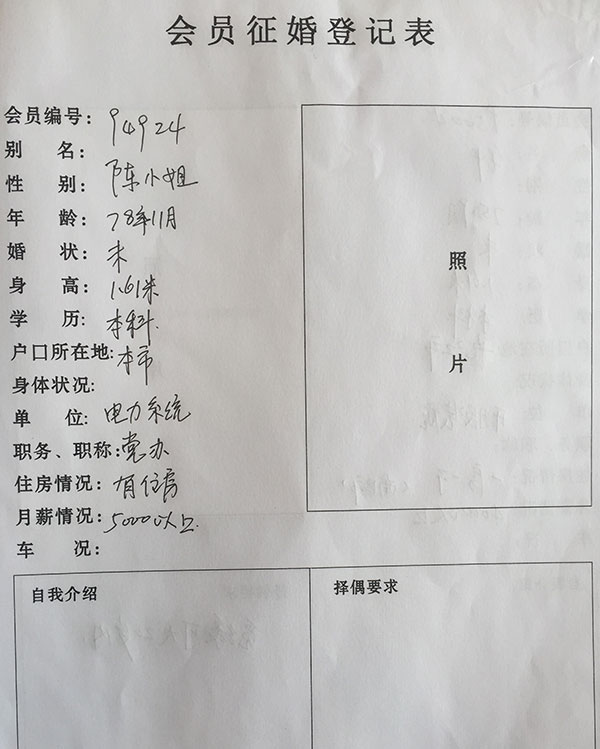 会员征婚登记表
会员编号: 94924
别 名:
性 别: 陈小姐
年 龄: 78年11月
婚 状: 未
身 高: 1.61米
学 历: 本科.
户口所在地: 本市
身体状况:
单 位: 电力系统
职务、职称: 党办
住房情况: 有住房
月薪情况: 5000以上.
车 况:
照
片
自我介绍
择偶要求